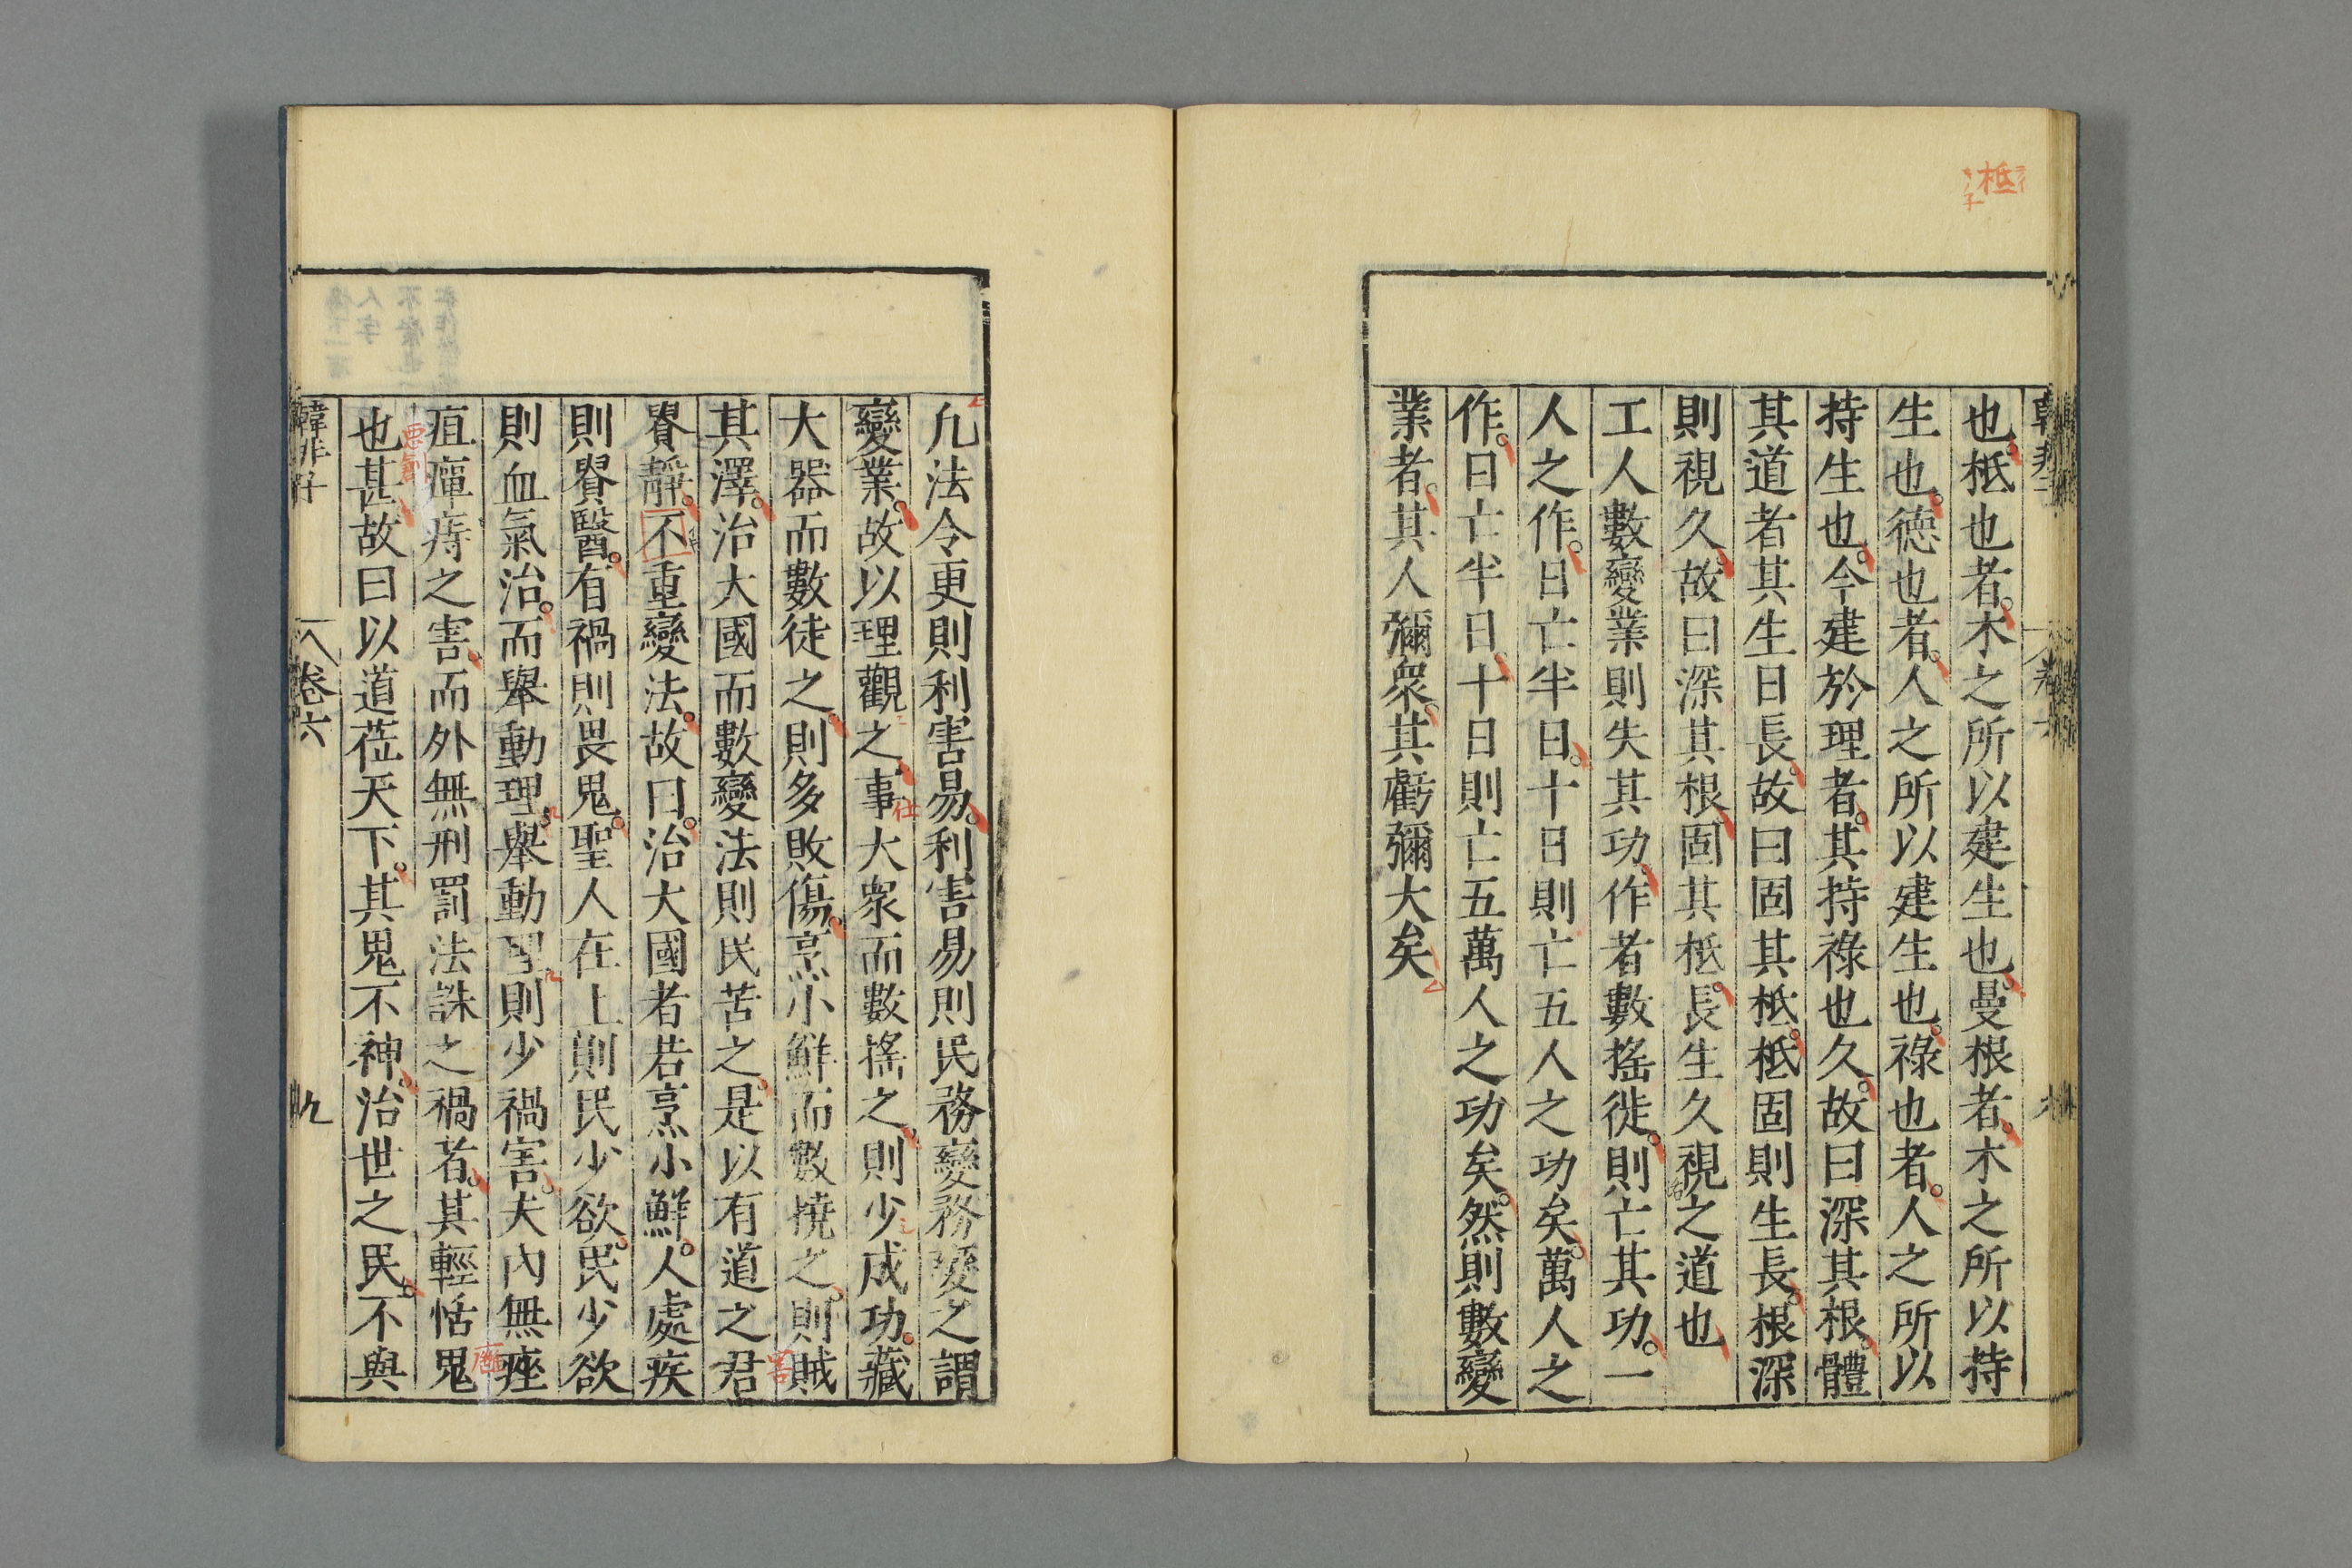 柢
也柢也者木之所以建生也曼根者木之所以持
生也德也者人之所以建生也祿也者人之所以
持生也今建於理者其持祿也久故曰深其根體
其道者其生日長故曰固其柢柢固則生長根深
則視久故曰深其根固其柢長生久視之道也
工人數變業則失其功作者數搖徙則亡其功一
人之作日亡半日十日則亡五人之功矣萬人之
作日亡半日十日則亡五萬人之功矣然則數變
業者其人彌衆其虧彌大矣
凢法令更則利害易利害易則民務變務變之謂
變業故以理觀之事大衆而數搖之則少成功藏
大器而數徙之則多敗傷烹小鮮而數撓之則賊
其澤治大國而數變法則民苦之是以有道之君
貴靜不重變法故曰治大國者若烹小鮮人處疾
則貴醫有禍則畏鬼聖人在上則民少欲民少欲
則血氣治而舉動理舉動理則少禍害夫內無痤
疽癉痔之害而外無刑罰法誅之禍者其輕恬鬼
也甚故曰以道莅天下其鬼不神治世之民不與
韓非子 卷六 九